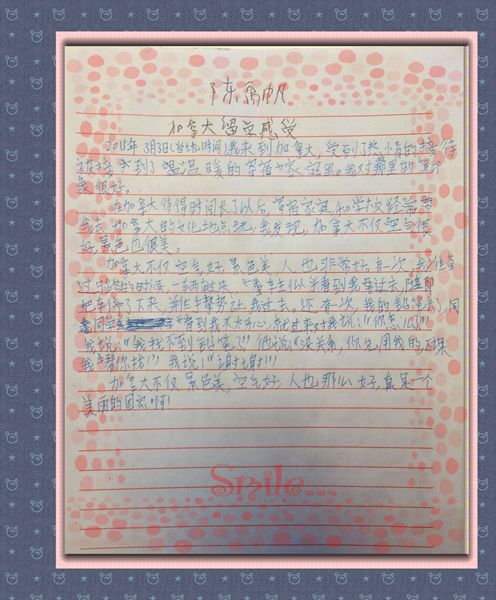 陈禹帆
加拿大留学感受
2015年3月3日(当地时间)我来到加拿大,受到了热情的接待
被接到了温温暖的寄宿家家庭里。我对那里的印
象很好。
在加拿大待得时间长了以后,寄宿家庭和学校经常带
我去加拿大的文化地点玩,我发现,加拿大不仅空气很
好,景色也很美。
加拿大不仅空气好,景色美,人也非常好。有一次,我准备
过马路的时候,一辆
把车停了下来,并让我过去。还有次,我的铅笔丢了,同
看到我不太开心,就过来对我说:"你怎么了?"
我说:"我找不到铅笔了。"他说:"没关系,你先用我的,
我帮你找!"我说:"谢谢!"
加拿大不仅景色美,空气好,人也那么好,真是一个
美丽的国家啊!
Smile...